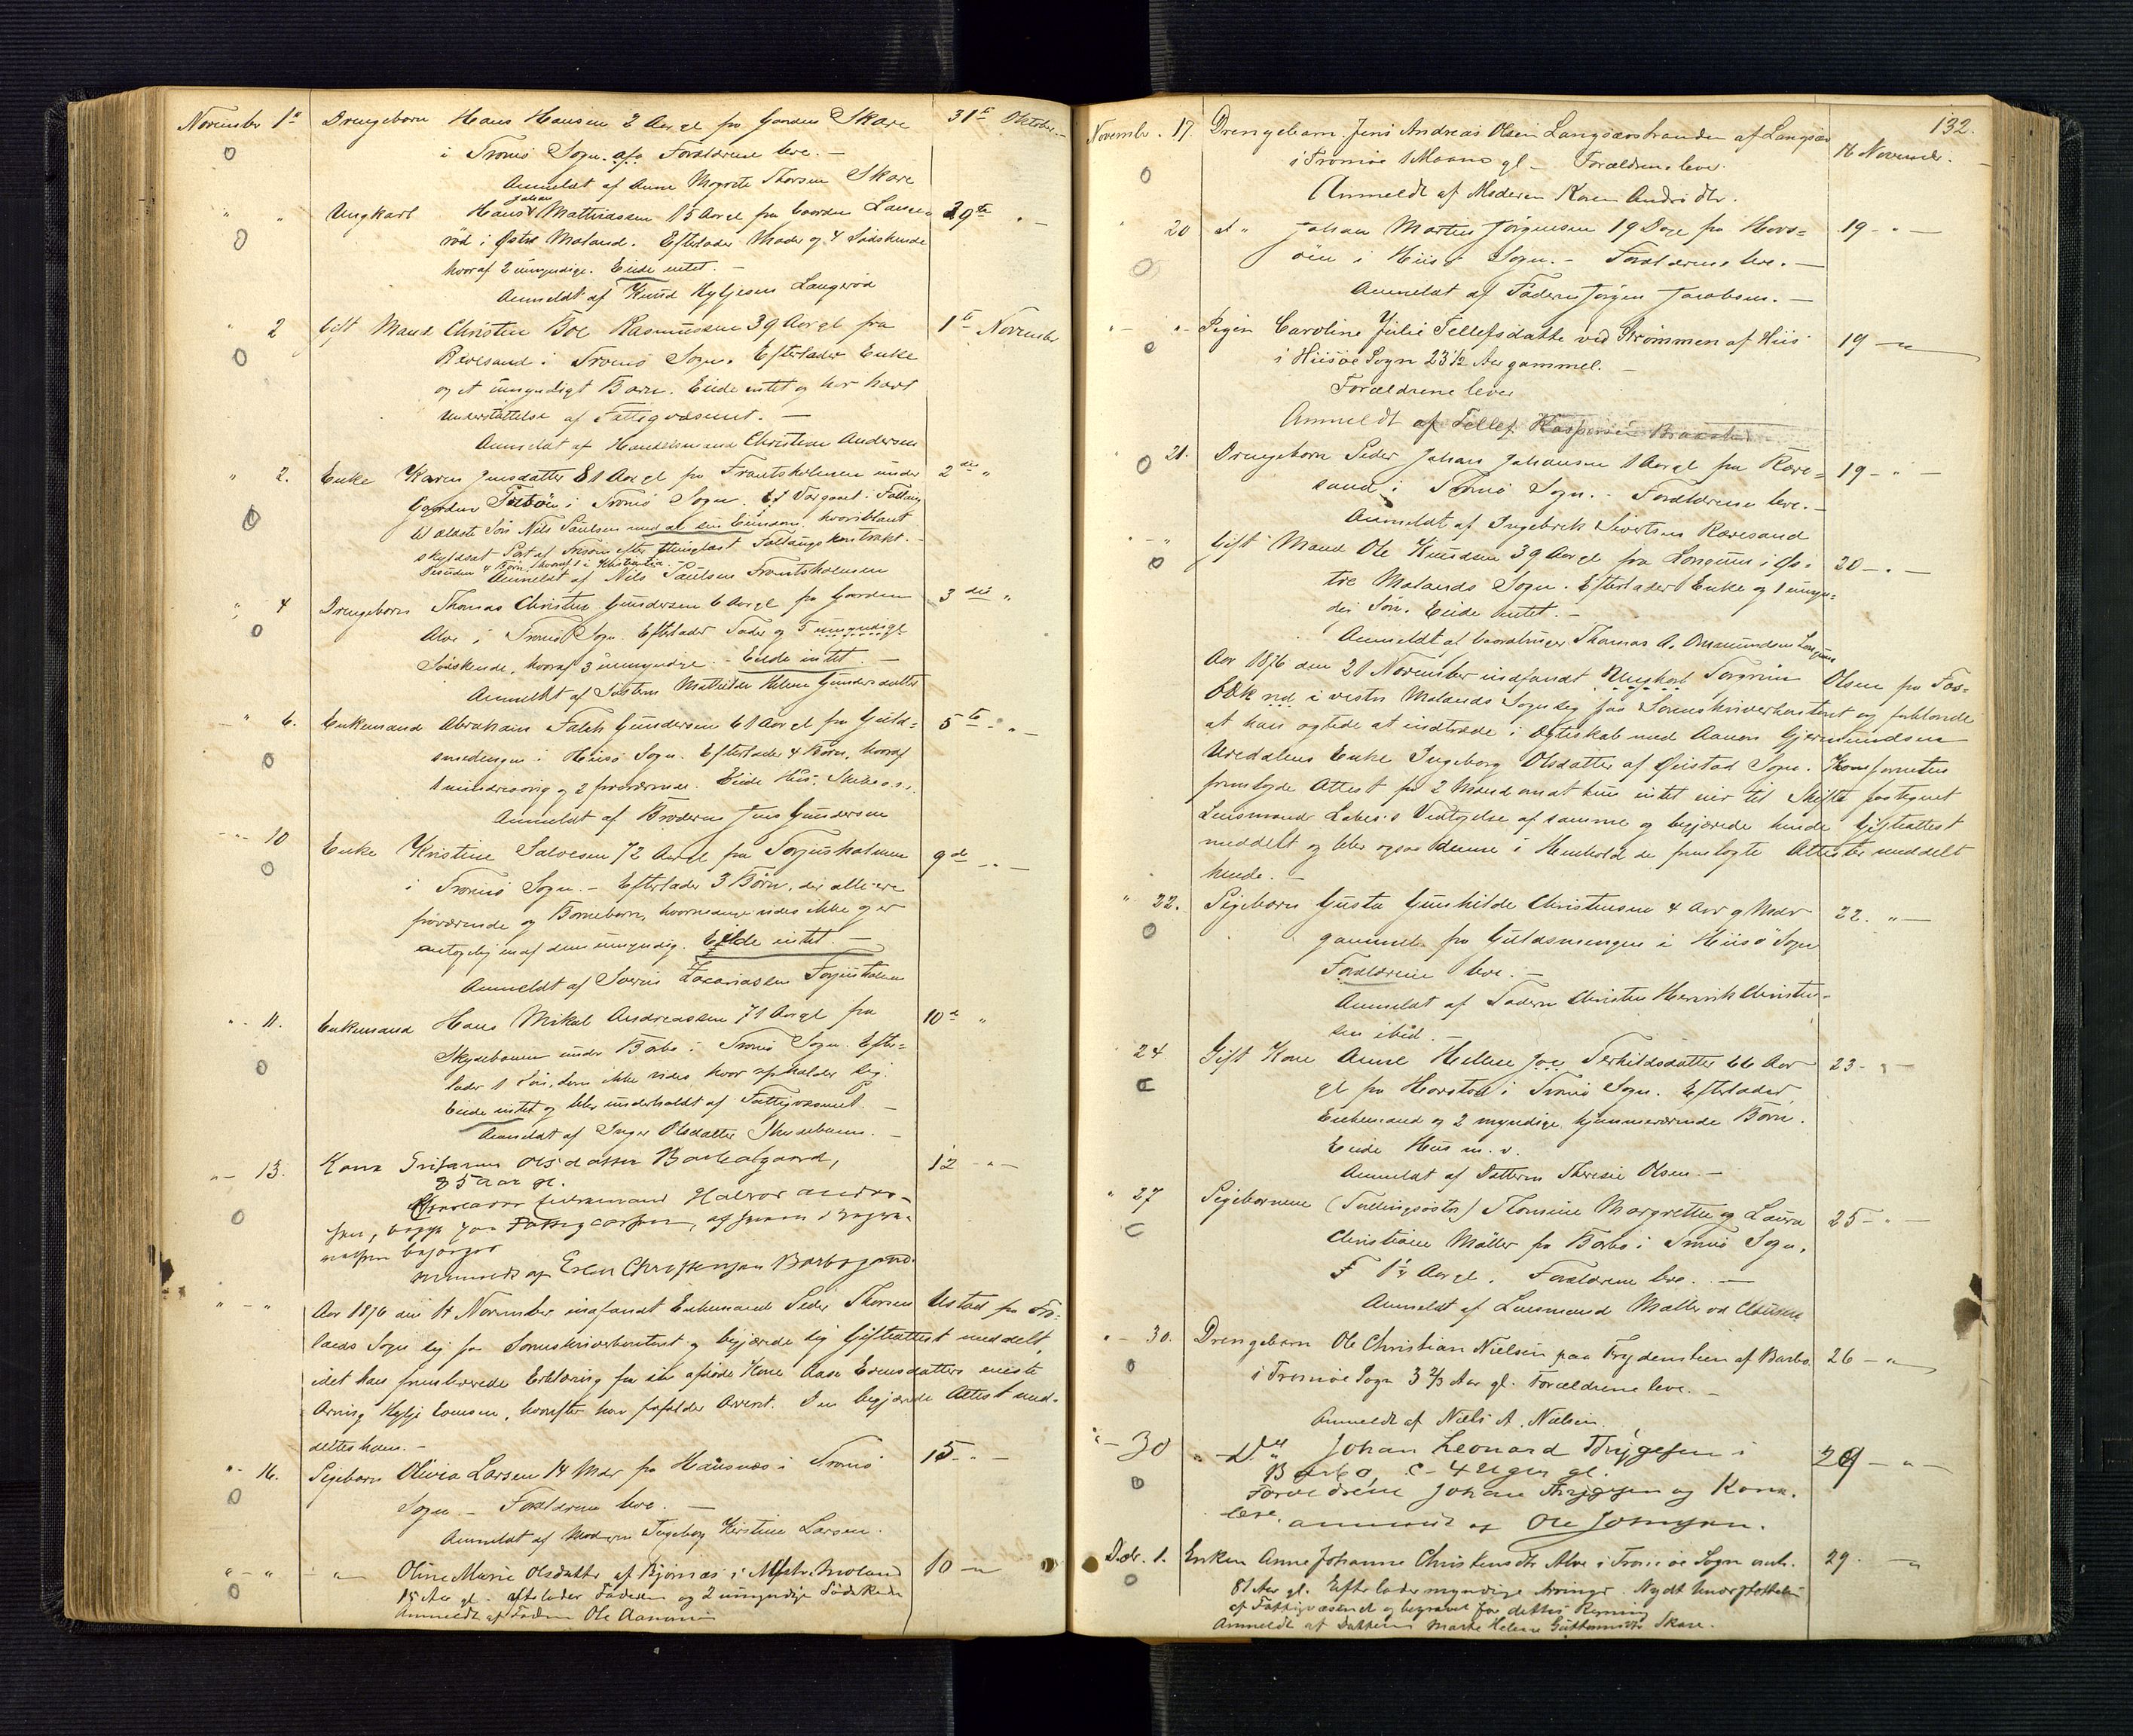 November 1ste Drengebarn Hans Hansen 2 Aar gl fra Gaarden Skare 31te Oktober
i Tromö Sogn. Forældrene leve. —
Anmeldt af Anne Margrete Thorsen Skare
" " Ungkarl Hans Johan Mathiassen 15 Aar gl fra Gaarden Lange- 29te " —
röd i Östre Moland. Efterlader Moder og 4 Södskende
hvoraf 2 umyndige. Eiede intet. —
Anmeldt af Knud Kyljesen Langeröd
" 2 Gift Mand Christen Boe Rasmussen 39 Aar gl fra 1te November
Revesand i Tromö Sogn. Efterlader Enke
og et umyndigt Barn. Eiede intet og har havt
Understöttelse af Fattigvæsenet. —
Anmeldt af Handelsmand Christian Andersen
" 2. Enke Karen Jensdatter 81 Aar gl fra Frantsholmen under 2den "
Gaarden i Tromö Sogn. Er Forgaaet i Fallang
til ældste Sön Nils Paulsen med al sin Eiendom, hvoriblandt
skyldsat Part af efter thinglæst Faltangskontrakt. —
Desuden 4 Börn, hvoraf 1 i Kristiania.
Anmeldt af Nils Paulsen Frantsholmen
" 4 Drengebarn Thomas Christen Gundersen 6 Aar gl fra Gaarden 3die "
Alve i Tromö Sogn. Efterlader Fader og 5 umyndige
Södskende, hvoraf 3 umyndige. — Eiede intet. —
Anmeldt af Söstern Mathilde Helene Gundersdatter
— " 6. Enkemand Abraham Falck Gundersen 61 Aar gl fra Guld- 5te " —
smedengen i Hisö Sogn. Efterlader 4 Börn, hvoraf
1 mindreaarig og 2 fraværende. Eiede Hus,
Anmeldt af Broderen Jens Gundersen
— " 10 Enke Kristine Salvesen 72 Aar gl fra Torjusholmen 9de " —
i Tromö Sogn. — Efterlader 3 Börn, der alle ere
fraværende og Börnebörn, hvormange vides ikke og er
antagelig en af dem umyndig. Eiede intet. —
Anmeldt af Soeren Zacariassen Torjusholmen
" - 11. Enkemand Hans Mikal Andreassen 71 Aar gl fra 10de "
Skydebanen under Barbo i Tromö Sogn. Efter-
lader 1 Sön, som ikke vides, hvor opholder sig.
Eiede intet og blev underholdt af Fattigvæsenet. —
Anmeldt af Inger Olsdatter Skydebanen. —
" — 13. Kone Olsdatter Barbogaard, 12 " —
85 Aar gl.
Efterlader Enkemand Halvor Andrea-
sen, begge paa Fattigcassen, af hvem
besörges
Anmeldt af Christensen Barbogaard.
" — " Aar 1876 den 14 November indfandt Enkemand Peder Thorsen Ustad fra Fro-
lands Sogn sig paa Sorenskriverkontoret og begjærede sig Gifteattest meddelt,
idet han fremleverede Erklæring fra sin afdöde Kone Aase Evensdatters eneste
Arving Kylje Evensen, hvorefter han frafalder Arven. Den begjærede Attest med-
deltes ham. —
" - 16. Pigebarn Olivia Larsen 14 Mdr fra Hausnæs i Tromö 15 - " —
Sogn. — Forældrene leve. —
Anmeldt af Moderen Ingeborg Kirstine Larsen.
" - " — " — Oline Marie Olsdatter af Bjornæs i Østr. Moland 10 — "
15 Aar gl. efterlader Faderen og 2 umyndige Södskende
Anmeldt af Faderen Ole Aanonsen
132.
Novembr. 17. Drengebarn Jens Andreas Olsen Langsæstranden af Langsæ 16 Novembr. —
i Tromöe 1 Maane gl — Forældrene lever.
Anmeldt af Moderen Karen Andr.dtr.
" 20 do " Johan Martin Jörgensen 19 Dage fra Havs- 19 - " —
öen i Hisö Sogn. — Forældrene leve. —
Anmeldt af Faderen Jörgen Jacobsen. —
" — " Pigen Caroline Julie Tellefsdatte ved Strömmen af Hiis 19 — "
i Hiisöe Sogn 23½ Aar gammel. —
Forældrene lever
Anmeldt af Tellef Kaspersen
" 21. Drengebarn Peder Johan Johansen 1 Aar gl fra Ræve- 19 — " —
sand i Tromö Sogn. — Forældrene leve. —
Anmeldt af Ingebrek Sivertsen Rævesand
" — " Gift Mand Ole Knudsen 39 Aar gl fra Longum i Øs- 20 — " —
tre Molands Sogn. Efterlader Enke og 1 umyn-
dig Sön. Eiede intet. —
Anmeldt af Gaardbruger Thomas A. Omundsen Longum
Aar 1876 den 21 November indfandt Ungkarl Torsten Olsen fra Fos-
i vestre Molands Sogn sig paa Sorenskriverkontoret og forklarede
at han agtede at indtræde i Ægteskab med Aanon Gjermundsen
Vredalens Enke Ingeborg Olsdatter af Öiestad Sogn. Komparenten
fremlagde Attest fra 2 Mænd om at hun intet eier til Skifte fastegnet
Lensmand Vedtagelse af samme og begjærede hende Gifteattest
meddelt og blev ogsaa denne i Henhold de fremlagte Attester meddelt
hende. —
" 22. Pigebarn Gusta Gunhilde Christensen 4 Aar 9 Mdr 22. " —
gammel fra Guldsmengen i Hiisö Sogn
Forældrene leve. —
Anmeldt af Fadern Christen Henrik Christen-
sen ibid. —
24. Gift Kone Anne Hellene Terkildsdatter 66 Aar 23 - " —
gl fra Harstad i Tromö Sogn. Efterlader
Enkemand og 2 myndige hjemmeværende Börn.
Eiede Hus m. v.
Anmeldt af Dattern Theresie Olsen. —
" 27 Pigebörnene (Tvillingsöstre) Thomine Margrethe og Laura 25 — " —
Christiane Möller fra Barbo i Tromö Sogn,
1½ Aar gl. Forældrene leve. —
Anmeldt af Lensmand Møller ved Clausen
" — 30. Drengebarn Ole Christian Nielsen paa Frydenlien af Barbo 26 — "
i Tromöe Sogn 3 2/3 Aar gl. Forældrene leve. —
Anmeldt af Niels A. Nielsen.
" — 30 " Do Johan Leonard Thrygesen i 29 — " —
Barbo, c- 4 Uger gl.
Forældrene Johan Thrygesen og Kone.
leve. anmeldt af Ole Johnsen.
Decbr. 1. Enken Anne Johanne Christensdtr Alve i Tromöe Sogn 29. — "
81 Aar gl. Efterlader myndige Arvinger. Nydt Understöttelse
af Fattigvæsenet og begravet for dettes Regning
Anmeldt af Datteren Marte Helene Guttormsdtr Skare.